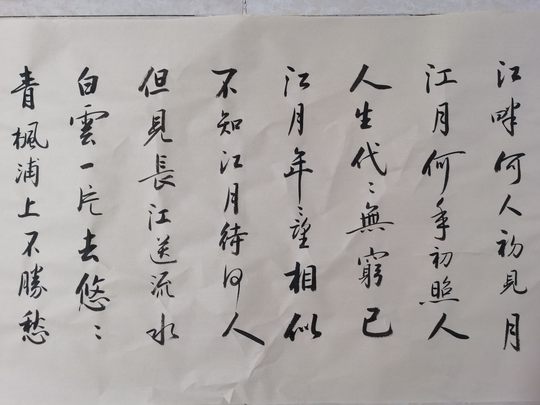 江畔何人初見月
江月何年初照人
人生代〻無窮已
江月年〻望相似
不知江月待何人
但見長江送流水
白雲一片去悠〻
青楓浦上不勝愁